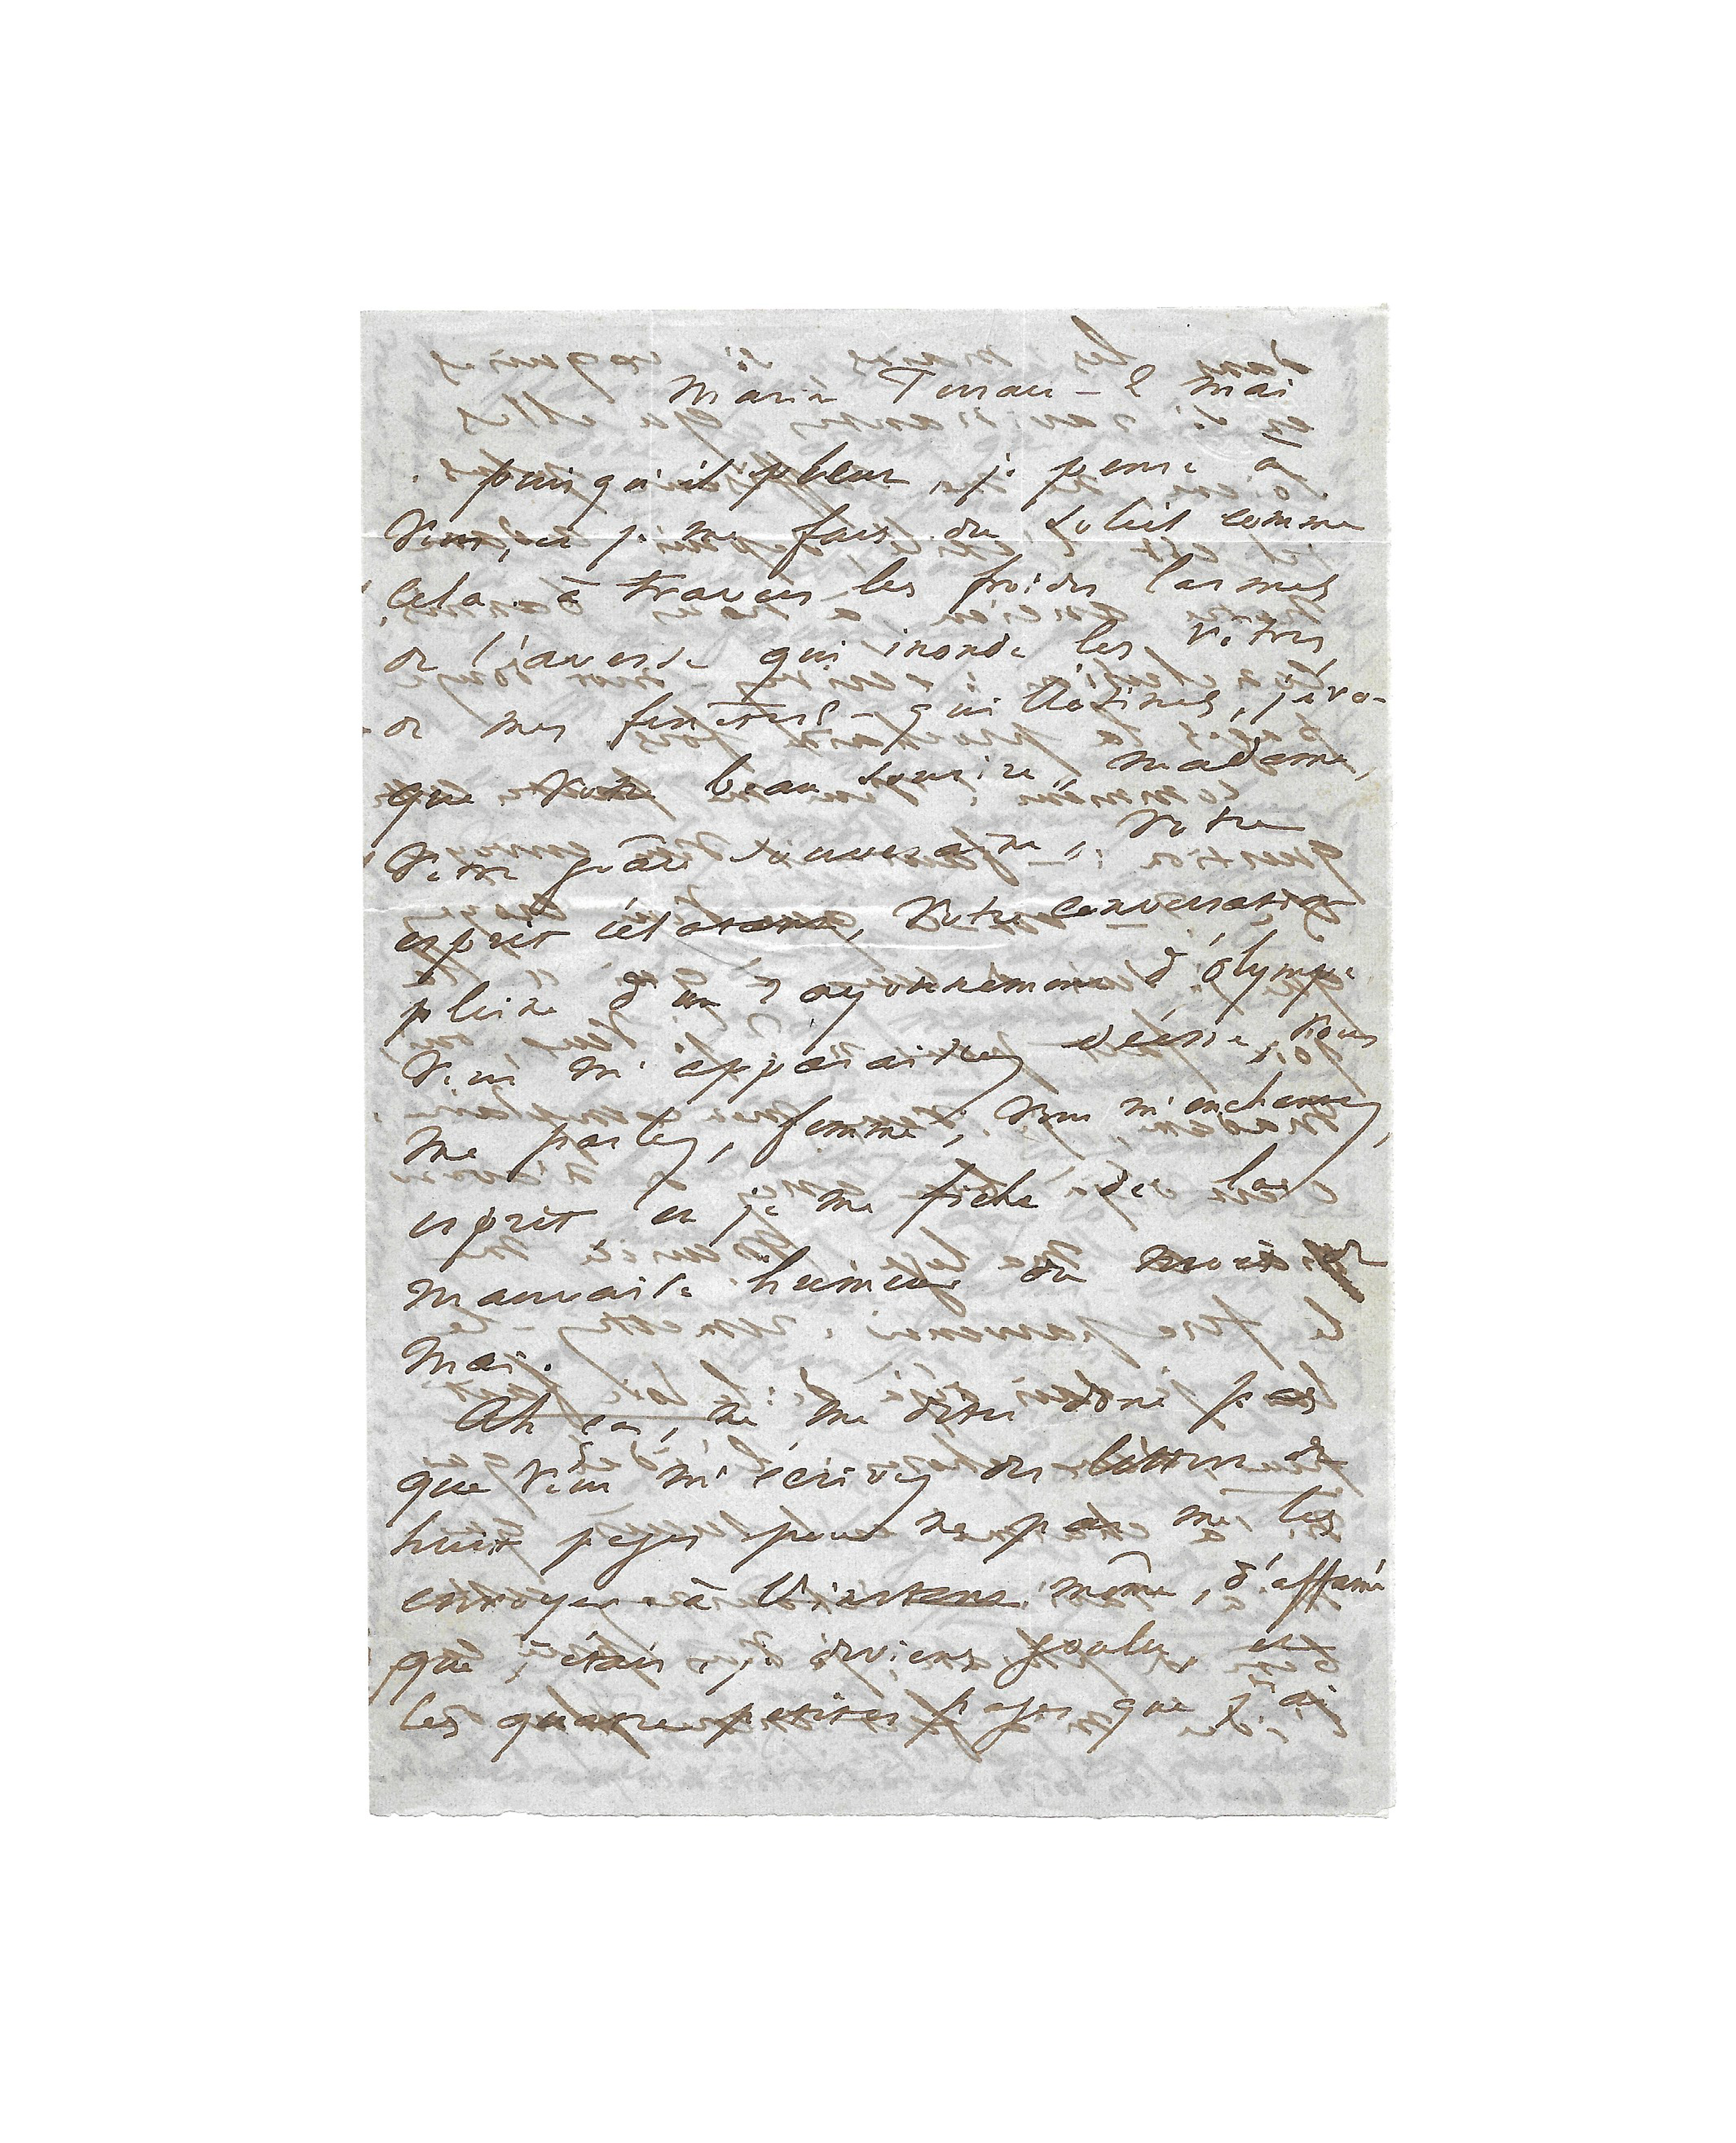 Maria Terrace - 2 mai
puisqu'il pleut, je pense à
vous, et je me fais du soleil comme
cela. à travers les froides larmes
de l'averse qui inonde les vitres
de mes fenêtres - j'évo-
que votre beau sourire, madame,
votre grâce souveraine, votre
esprit éclatant, votre conversation
pleine d'un rayonnement d'Olympe
vous m'apparaissez déesse, vous
me parlez, femme, vous m'enchantez,
esprit et je me fiche de la
mauvaise humeur du mois de
mai.
Ah ça, ne me dites donc pas
que vous m'écrivez des lettres de
huit pages pour ne pas me les
envoyer à l'instant même, d'affamé
que j'étais, je deviens goulu, et
les quatre petites pages que j'ai